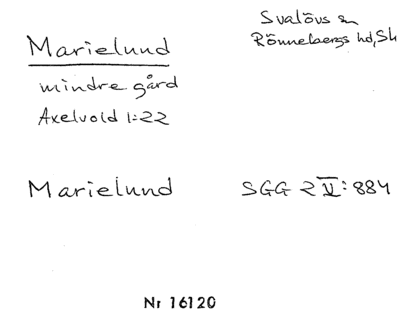 Marielund
Svalövs sn
Rönnebergs hd, Sk
mindre gård
Axelvold 1:22
Marielund
SGG 2 V: 884
Nr 16120